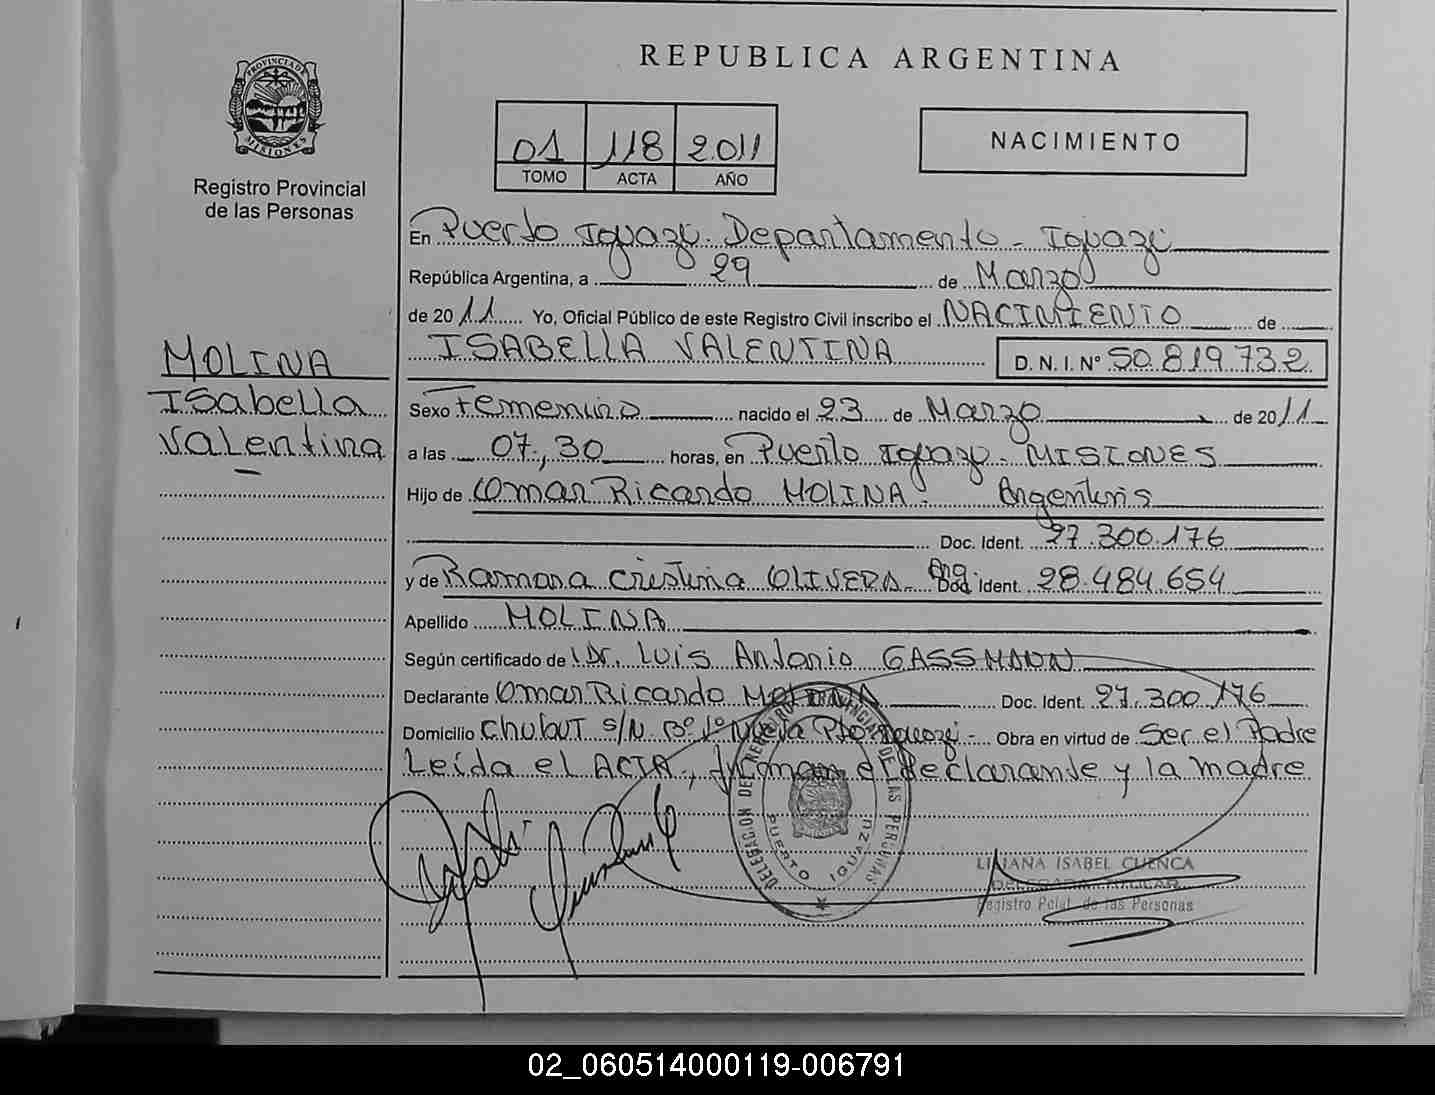 REPUBLICA ARGENTINA
PROVINCIA DE MISIONES
Registro Provincial
de las Personas
01 118 2011
TOMO ACTA AÑO
NACIMIENTO
En Puerto Iguazú. Departamento - Iguazú
República Argentina, a 29 de Marzo
de 2011 Yo, Oficial Público de este Registro Civil inscribo el NACIMIENTO de
ISABELLA VALENTINA D. N. I. Nº 50.819.732
MOLINA
Isabella
Valentina
Sexo Femenino nacido el 23 de Marzo de 2011
a las 07,30 horas, en Puerto Iguazú. MISIONES
Hijo de Omar Ricardo MOLINA. Argentino
Doc. Ident. 27.300.176
y de Ramona Cristina OLIVERA. Arg. Doc. Ident. 28.484.654
Apellido MOLINA
Según certificado de Dr. Luis Antonio GASSMANN
Declarante Omar Ricardo MOLINA Doc. Ident. 27.300.176
Domicilio Chubut s/N. Bº 1º Nueva Pto Iguazú - Obra en virtud de Ser el Padre
Leída el ACTA, firman el declarante y la madre
DELEGACION DEL REGISTRO PROVINCIAL DE LAS PERSONAS
PUERTO IGUAZU
LILIANA ISABEL CUENCA
DELEGADA TITULAR
Registro Pcial. de las Personas
02_060514000119-006791